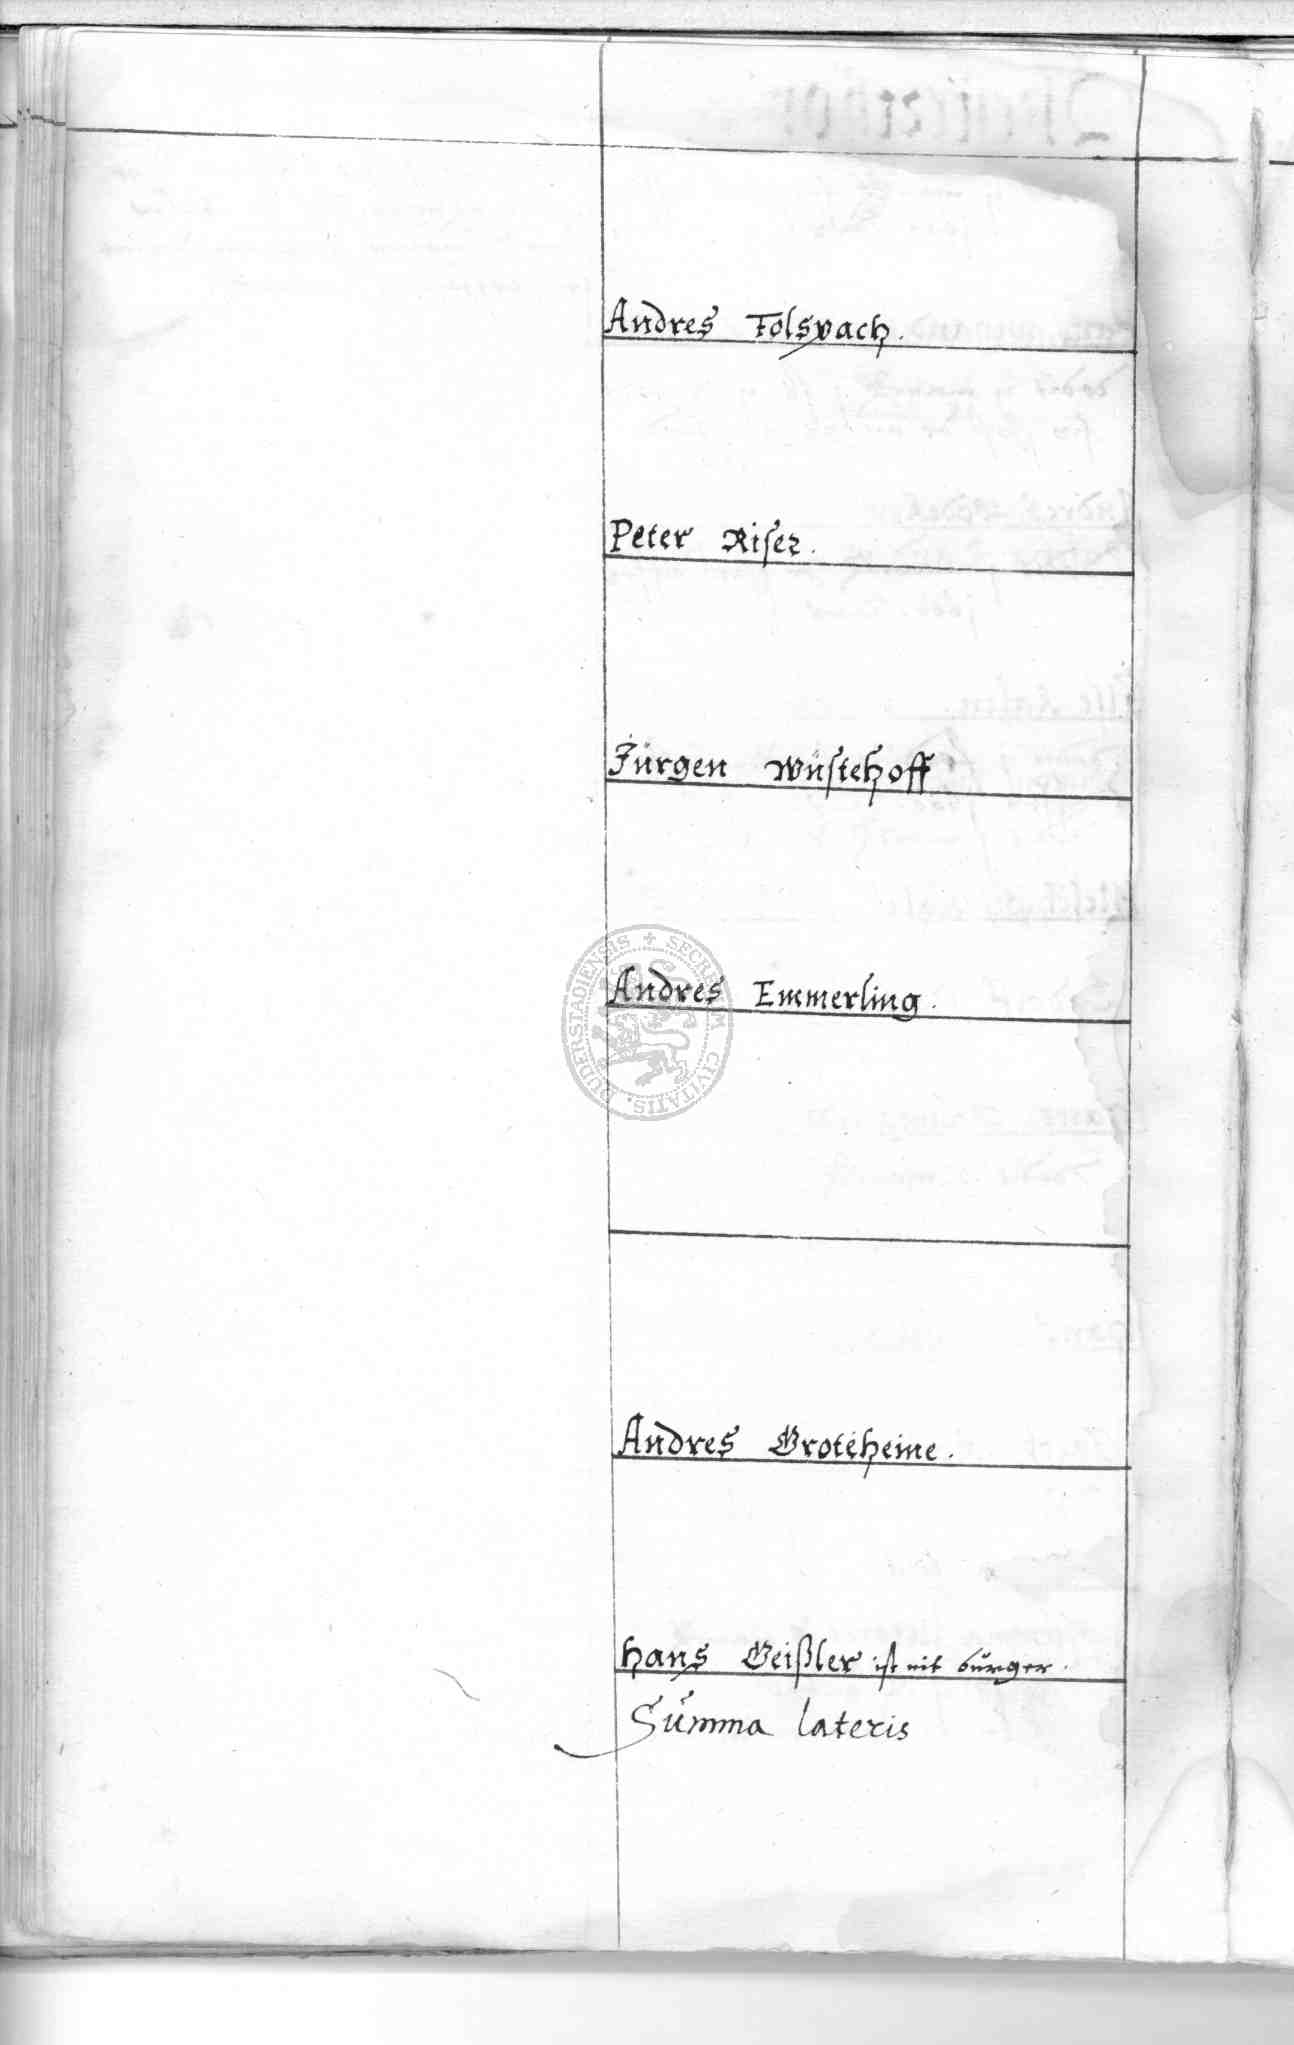 Andres Tolsvach.
Peter Riser.
Jürgen Wüstehoff
Andres Emmerling.
Andres Groteheine.
Hans Geißler ist nit bürger.
Summa lateris
SECRETUM CIVITATIS DUDERSTADIENSIS